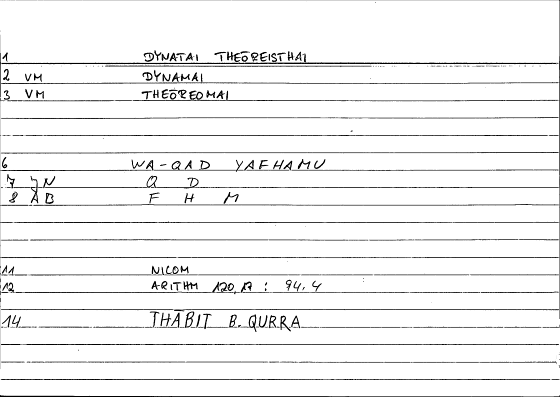 1 DYNATAI THEŌREISTHAI
2 VM DYNAMAI
3 VM THEŌREOMAI
6 WA-QAD YAFHAMU
7 JN Q D
8 AB F H M
11 NICOM
12 ARITHM 120,17 : 94.4
14 THĀBIT B. QURRA